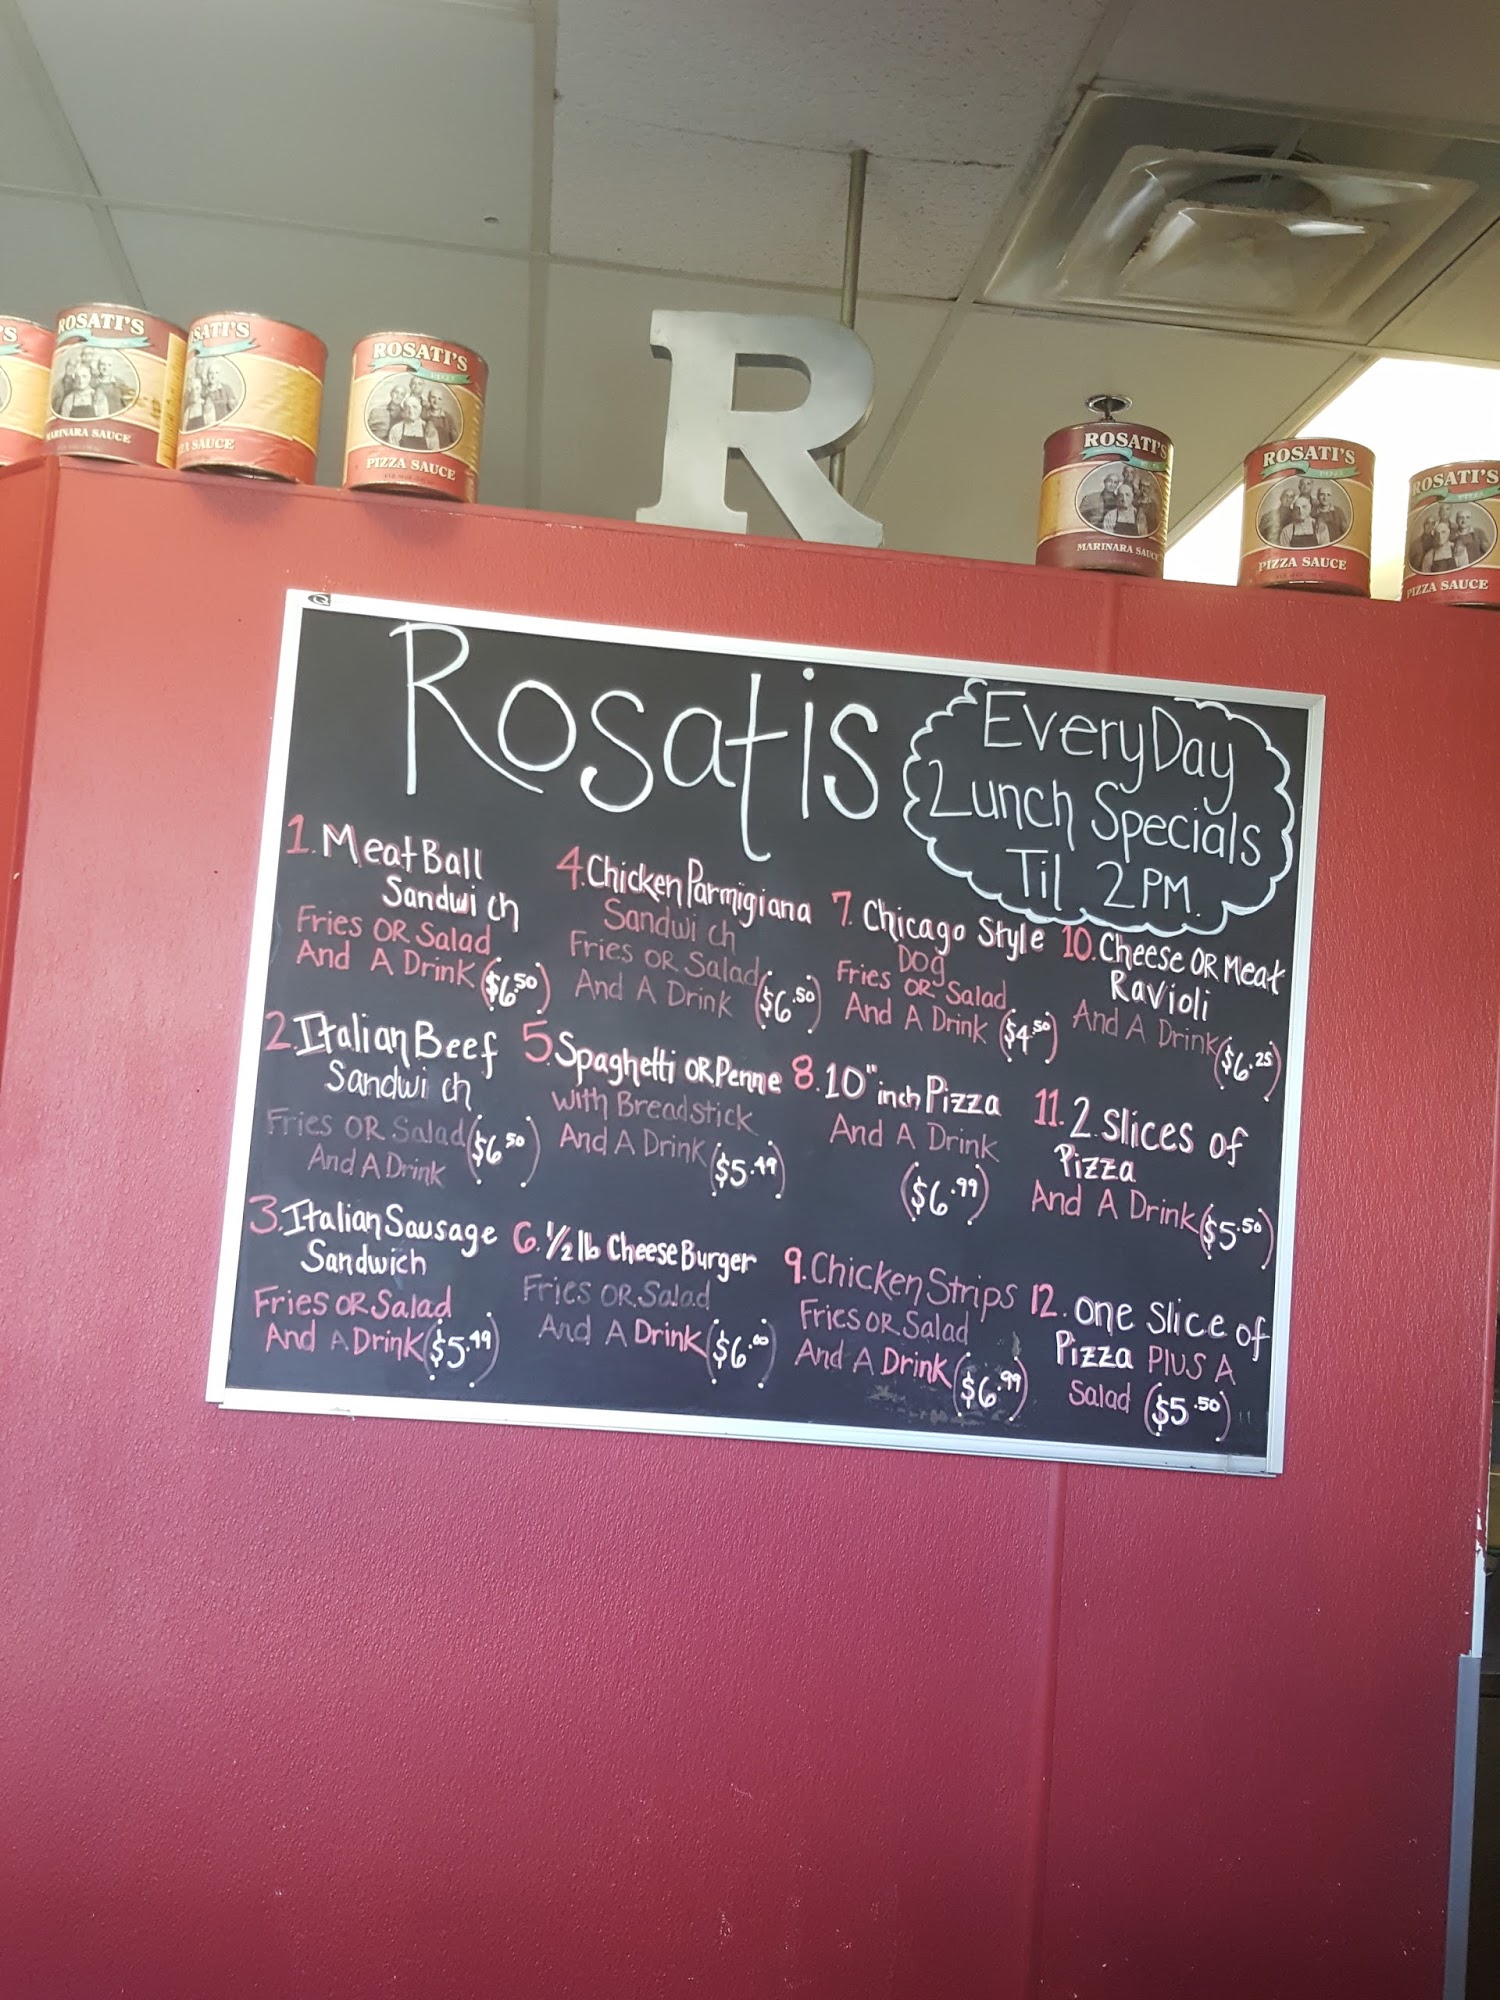 ROSATI'S
MARINARA SAUCE
SATI'S
SAUCE
ROSATI'S
PIZZA SAUCE
R
ROSATI'S
MARINARA SAUCE
ROSATI'S
PIZZA SAUCE
ROSATI'S
PIZZA SAUCE
Rosatis
EveryDay
Lunch Specials
Til 2PM.
1. Meat Ball
Sandwich
Fries OR Salad
And A Drink ($6.50)
2. Italian Beef
Sandwich
Fries OR Salad ($6.50)
And A Drink
3. Italian Sausage
Sandwich
Fries OR Salad
And A Drink ($5.49)
4. Chicken Parmigiana
Sandwich
Fries OR Salad
And A Drink ($6.50)
5. Spaghetti OR Penne
with Breadstick
And A Drink ($5.49)
6. 1/2 lb Cheese Burger
Fries OR Salad
And A Drink ($6.00)
7. Chicago Style
Dog
Fries OR Salad
And A Drink ($4.50)
8. 10" inch Pizza
And A Drink
($6.99)
9. Chicken Strips
Fries OR Salad
And A Drink ($6.99)
10. Cheese OR Meat
Ravioli
And A Drink ($6.25)
11. 2 Slices of
Pizza
And A Drink ($5.50)
12. one Slice of
Pizza PLUS A
Salad ($5.50)